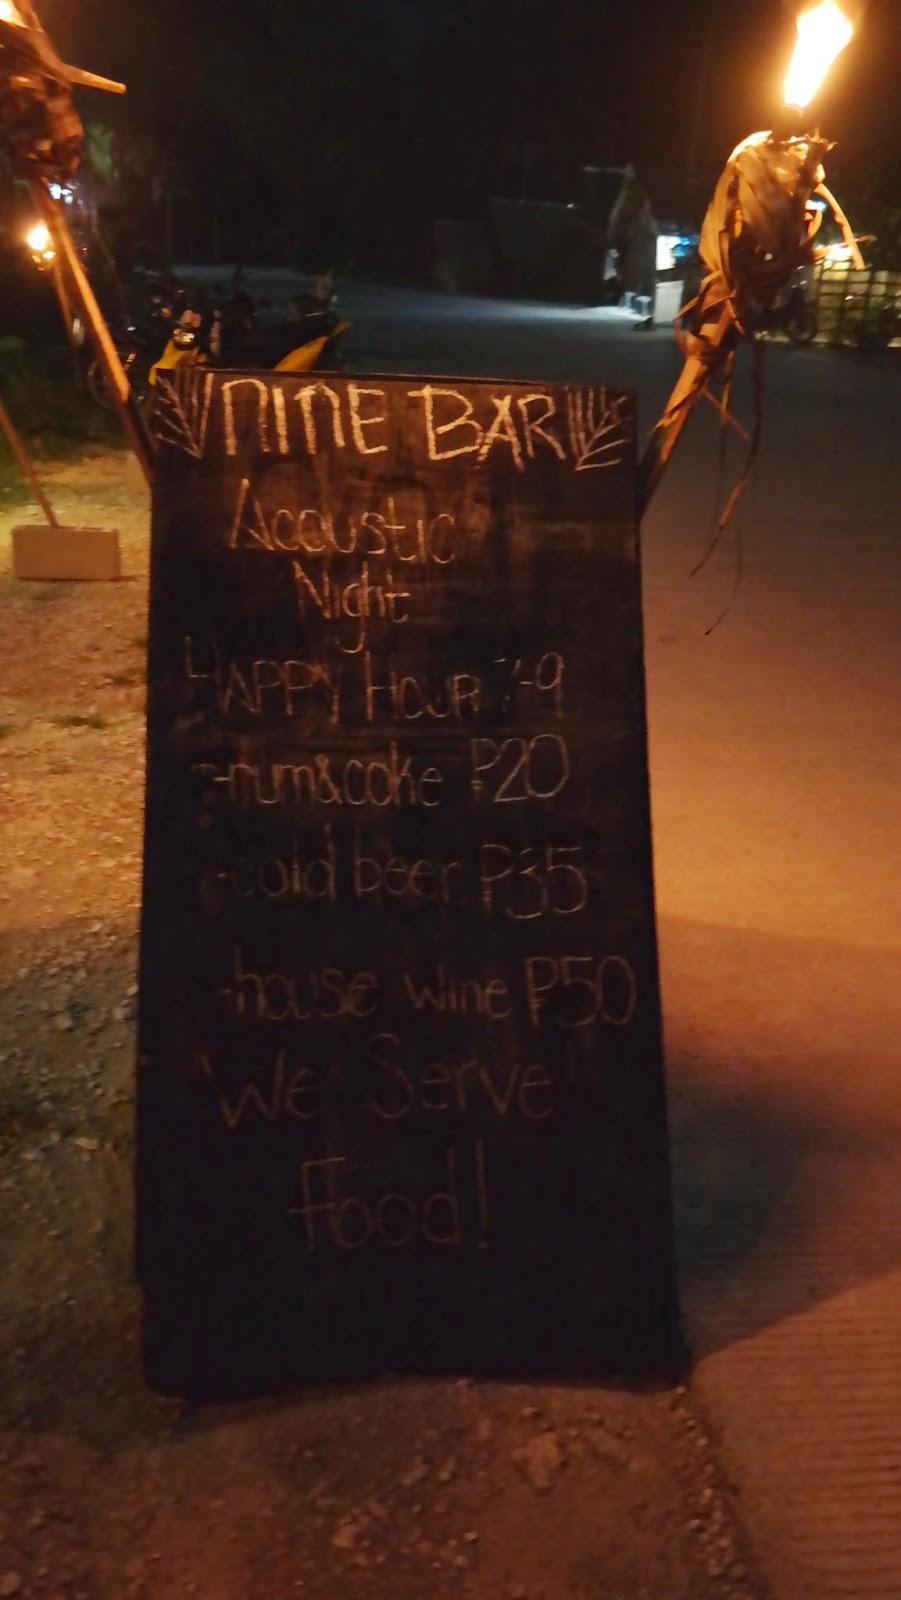 NINE BAR
Acoustic
Night
HAPPY HOUR 7-9
-rum&coke ₱20
-cold beer ₱35
-house wine ₱50
We Serve
Food!